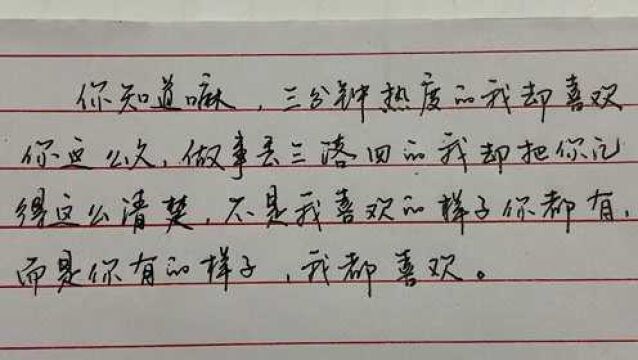 你知道嘛，三分钟热度的我却喜欢
你这么久，做事丢三落四的我却把你记
得这么清楚，不是我喜欢的样子你都有，
而是你有的样子，我都喜欢。